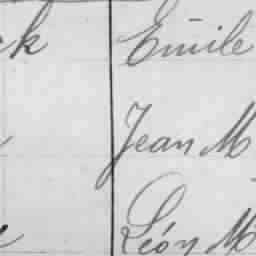 ck Emile
Jean M
Léon M